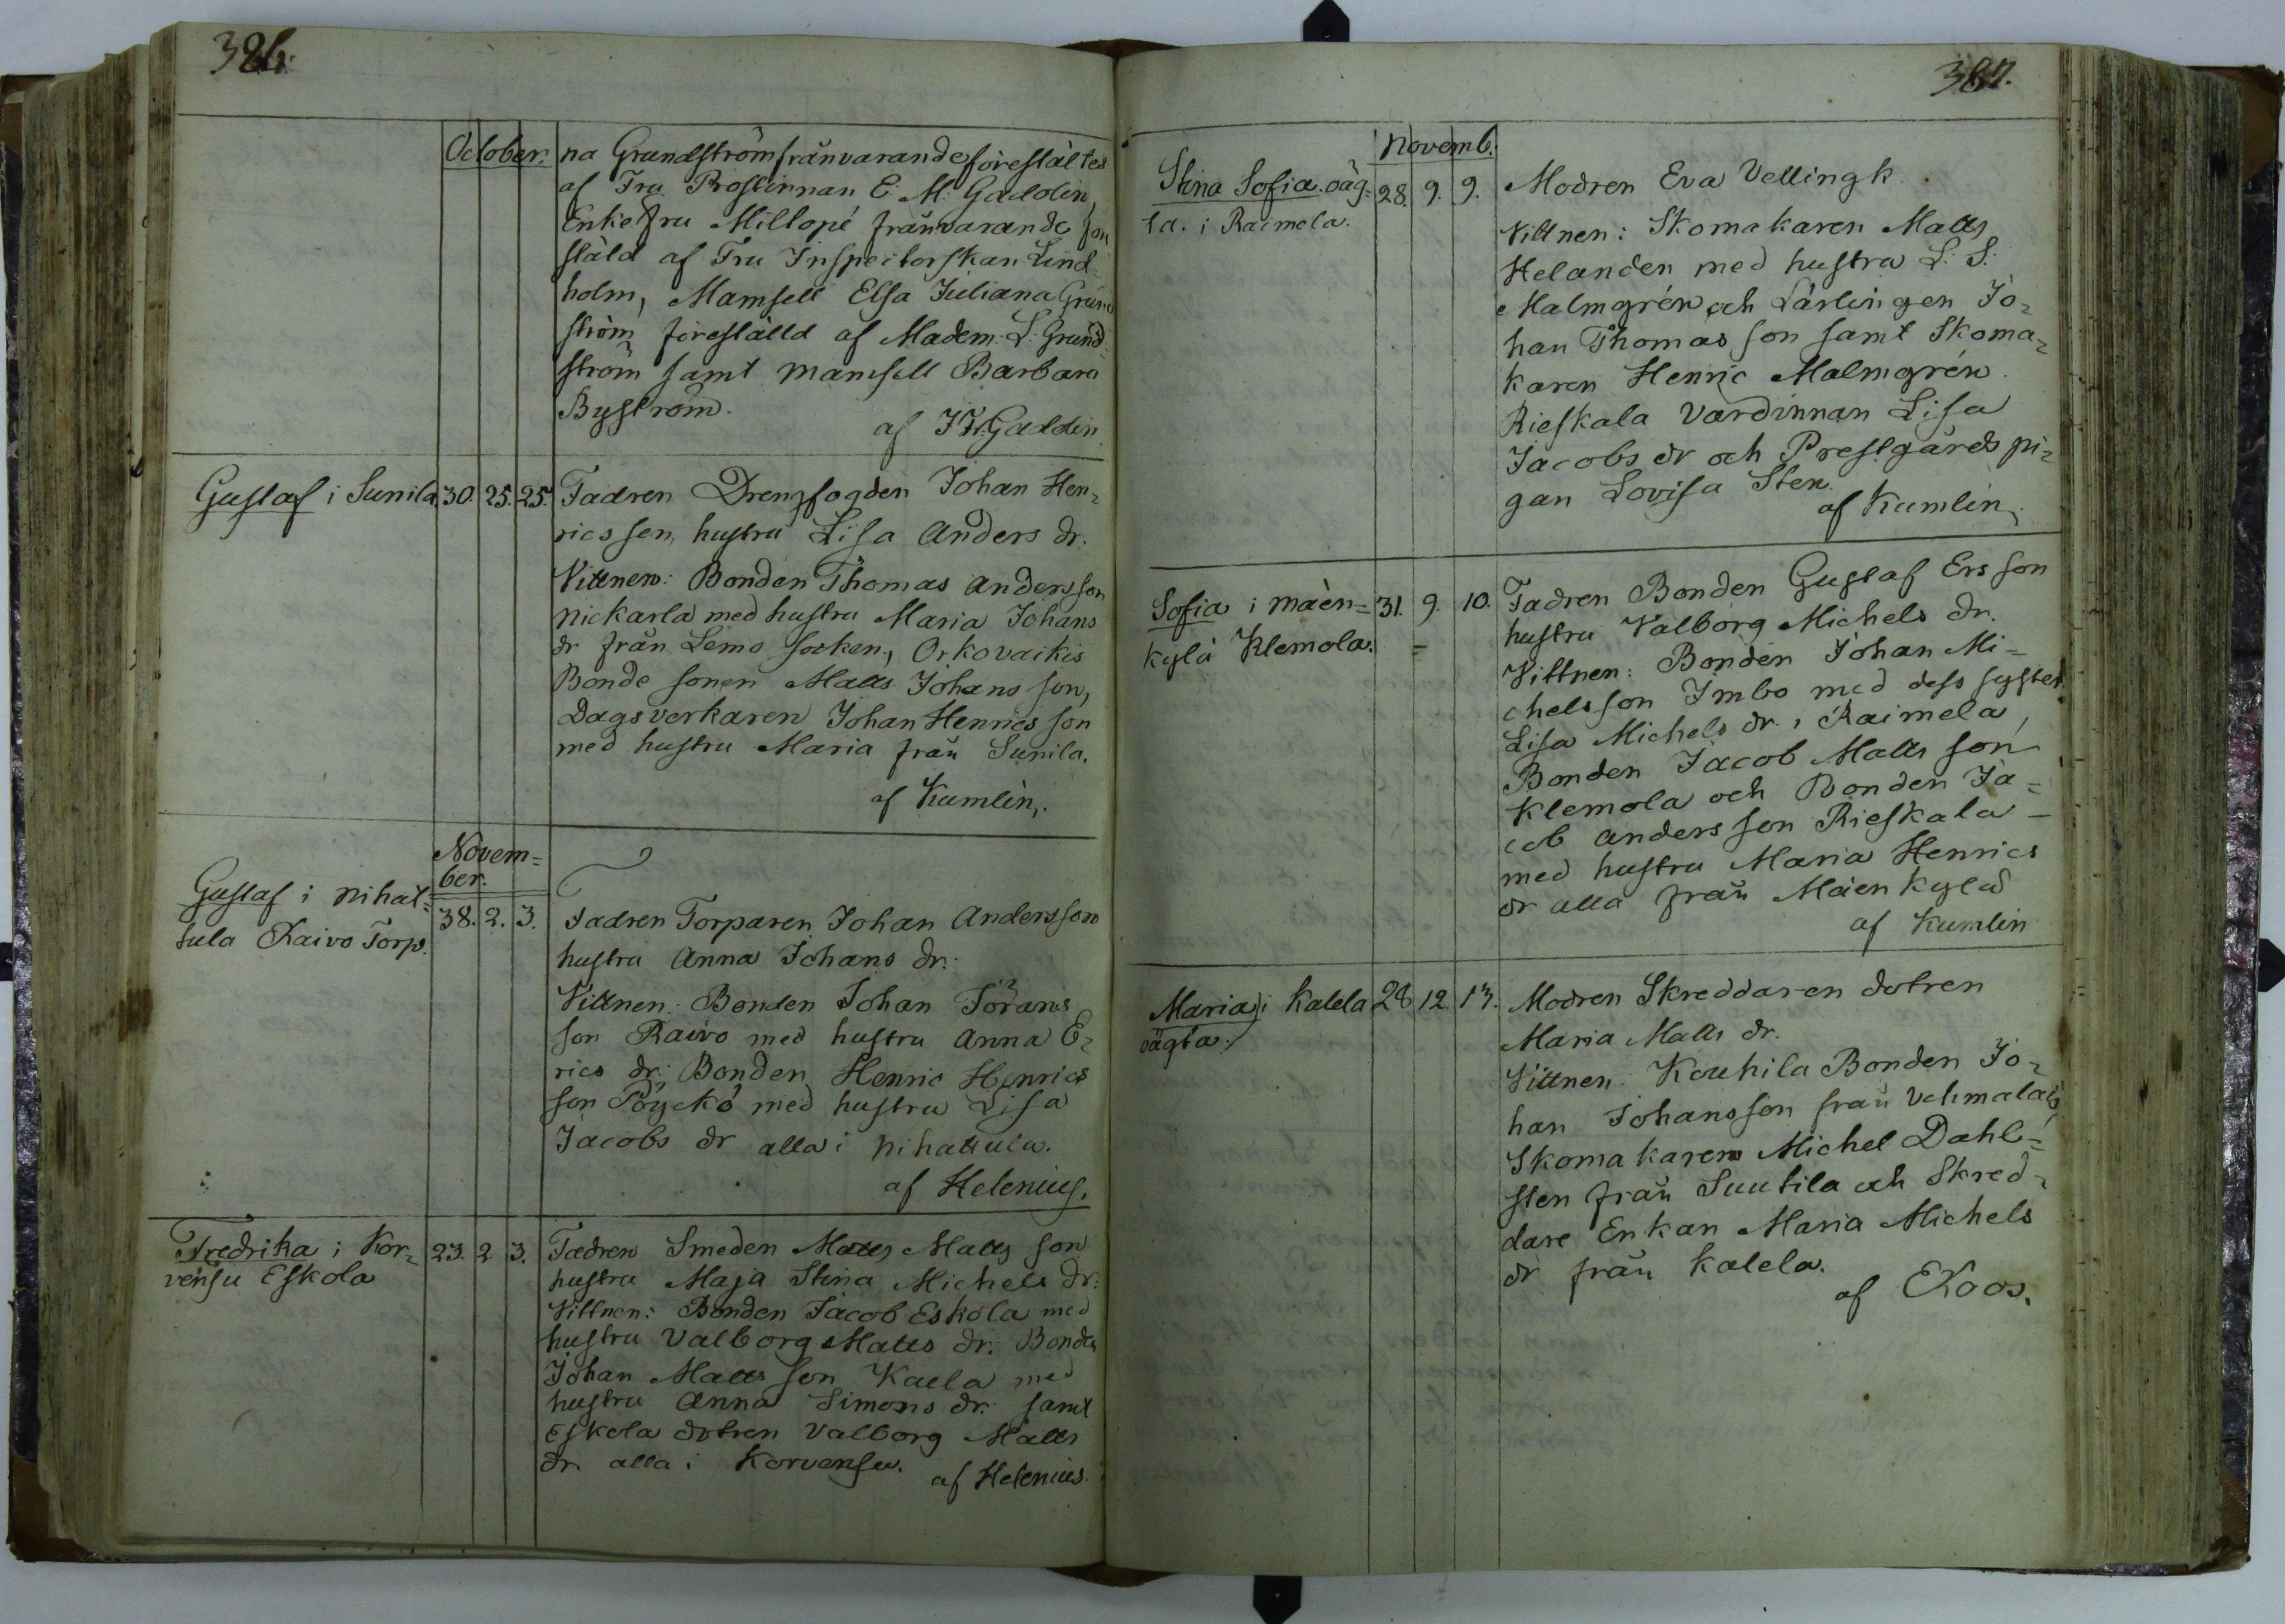 386.
October.
na Grundström frånvarande föreståltes
af Fru Prostinnan E. M. Gaddin,
Enkefru Millopé frånvarande för
stäld af Fru Inspectorskan Lind-
holm, Mamsell Elsa Juliana Grund
ström föreställd af Madem. L. Grund-
ström samt mamsell Barbara
Byström.
af J F. Gaddin
Gustaf i Sunila 30. 25. 25. Fadren Drengfogden Johan Hen-
rics son, hustru Lisa Anders dr.
Vittnen: Bonden Thomas Andersson
Nickarla med hustru Maria Johans
dr från Lemo socken, Orkovaikis
Bonde sonen Matts Johans son,
Dagsverkaren Johan Henrics son
med hustru Maria från Sunila.
af Kumlin.
Novem=
ber.
Gustaf i Nihat= 38. 2. 3. Fadren Torparen Johan Andersson
tula Raivo Torp.
hustru Anna Johans dr.
Vittnen: Bonden Johan Jörans
son Raivo med hustru Anna E-
rics dr. Bonden Henric Henrics
son Pöyckö med hustru Lisa
Jacobs dr alla i Nihattula.
af Helenius.
Fredrika i Kor- 23. 2 3. Fadren Smeden Matts Matts son
vensu Eskola
hustru Maja Stina Michels dr.
Vittnen: Bonden Jacob Eskola med
hustru Valborg Matts dr. Bonden
Johan Matts son Kaela med
hustru Anna Simons dr. samt
Eskola dotren Valborg Matts
dr. alla i Korvensu.
af Helenius.
387.
Novemb.
Stina Sofia. oäg- 28. 9. 9. Modren Eva Vellingk
ta. i Raimela.
Vittnen: Skomakaren Matts
Helander med hustru L. S.
Malmgrén och Lärlingen Jo-
han Thomas son samt Skoma-
karen Henric Malmgrén.
Rieskala Värdinnan Lisa
Jacobs dr och Prestgårds pi-
gan Lovisa Sten.
af Kumlin.
Sofia i Mäen= 31. 9. 10. Fadren Bonden Gustaf Ers son
kylä Klemola. =
hustru Valborg Michels dr.
Vittnen: Bonden Johan Mi=
chelsson Imbo med dess syster
Lisa Michels dr. i Raimela,
Bonden Jacob Matts son
Klemola och Bonden Ja=
cob Anders son Rieskala
med hustru Maria Henrics
dr alla från Mäenkylä
af Kumlin
Maria i Kalela 28 12 13. Modren Skreddaren dotren
oägta.
Maria Matts dr.
Vittnen: Kouhila Bonden Jo-
han Johansson från Vehmalais
Skomakaren Michel Dahl=
sten från Suutila och Skred-
dare Enkan Maria Michels
dr från Kalela.
af Roos.